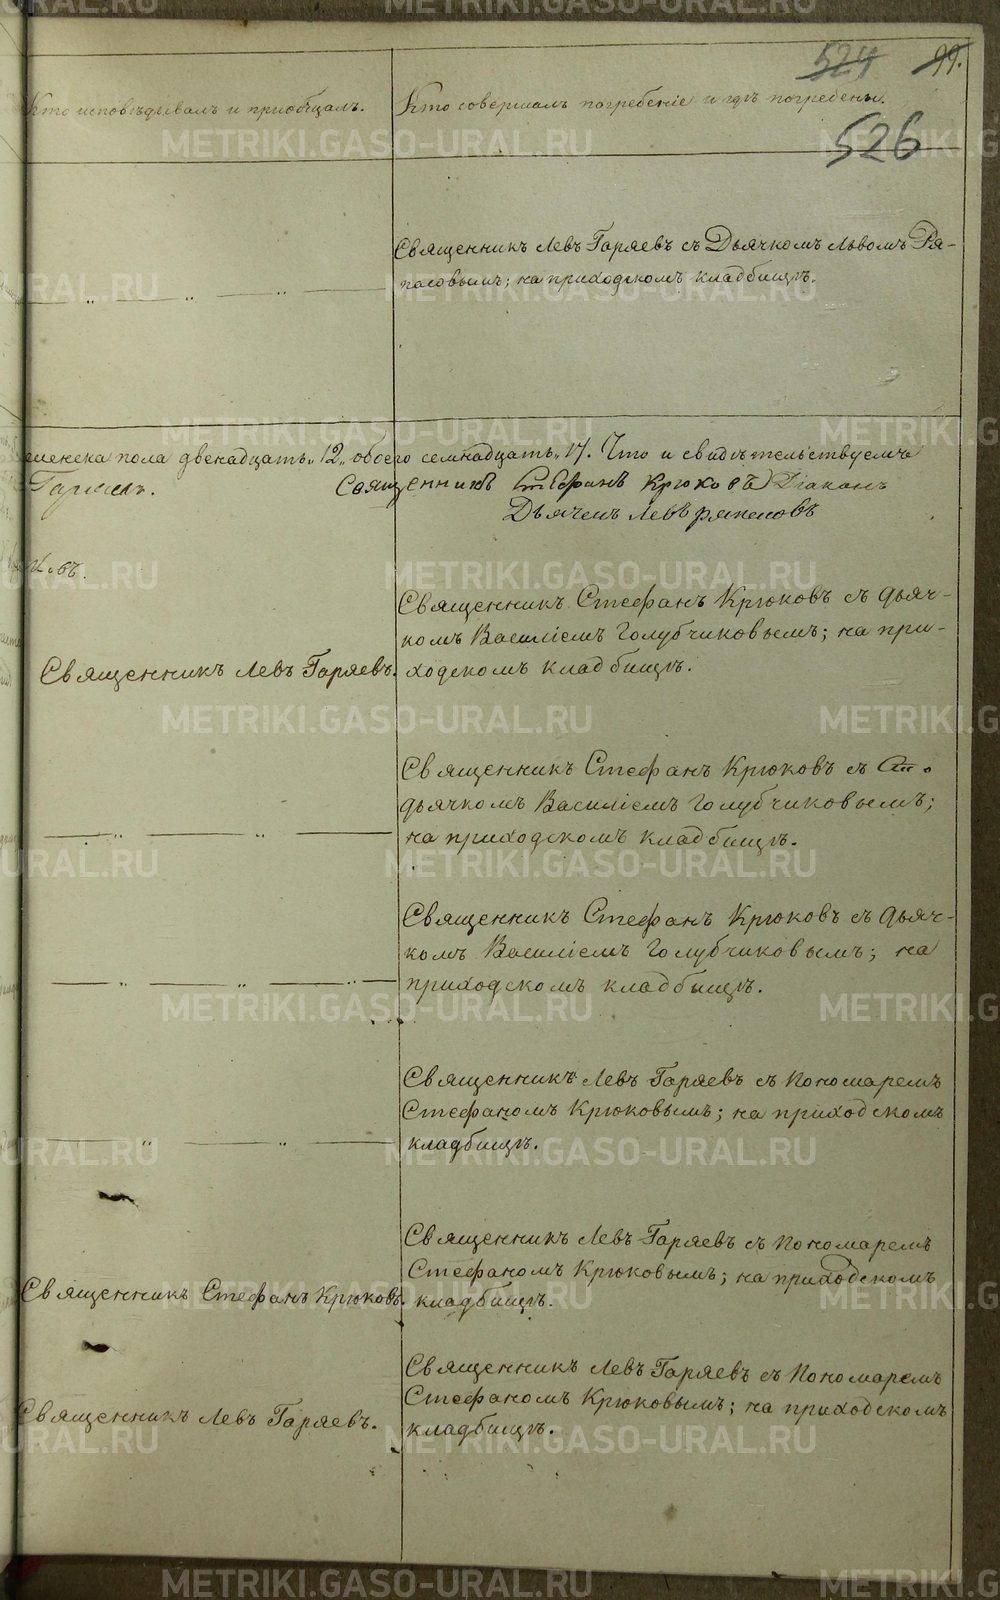 524 99.
526
Кто исповѣдывалъ и пріобщалъ.
Кто совершалъ погребеніе и гдѣ погребены.
Священникъ Левъ Гаряевъ съ Дьячкомъ Львомъ Ря-
пасовымъ; на приходскомъ кладбищѣ.
женска пола двенадцать „12„ обоего семнадцать „17. Что и свидѣтельствуемъ
Священникъ Стефанъ Крюковъ Діаконъ
Дьячекъ Левъ Ряпасовъ
Священникъ Левъ Гаряевъ.
Священникъ Стефанъ Крюковъ съ дьяч-
комъ Василіемъ Голубчиковымъ; на при-
ходскомъ кладбищѣ.
Священникъ Стефанъ Крюковъ съ
дьячкомъ Василіемъ Голубчиковымъ;
на приходскомъ кладбищѣ.
Священникъ Стефанъ Крюковъ съ дьяч-
комъ Василіемъ Голубчиковымъ; на
приходскомъ кладбищѣ.
Священникъ Левъ Гаряевъ съ Пономаремъ
Стефаномъ Крюковымъ; на приходскомъ
кладбищѣ.
Священникъ Стефанъ Крюковъ.
Священникъ Левъ Гаряевъ съ Пономаремъ
Стефаномъ Крюковымъ; на приходскомъ
кладбищѣ.
Священникъ Левъ Гаряевъ.
Священникъ Левъ Гаряевъ съ Пономаремъ
Стефаномъ Крюковымъ; на приходскомъ
кладбищѣ.
METRIKI.GASO-URAL.RU